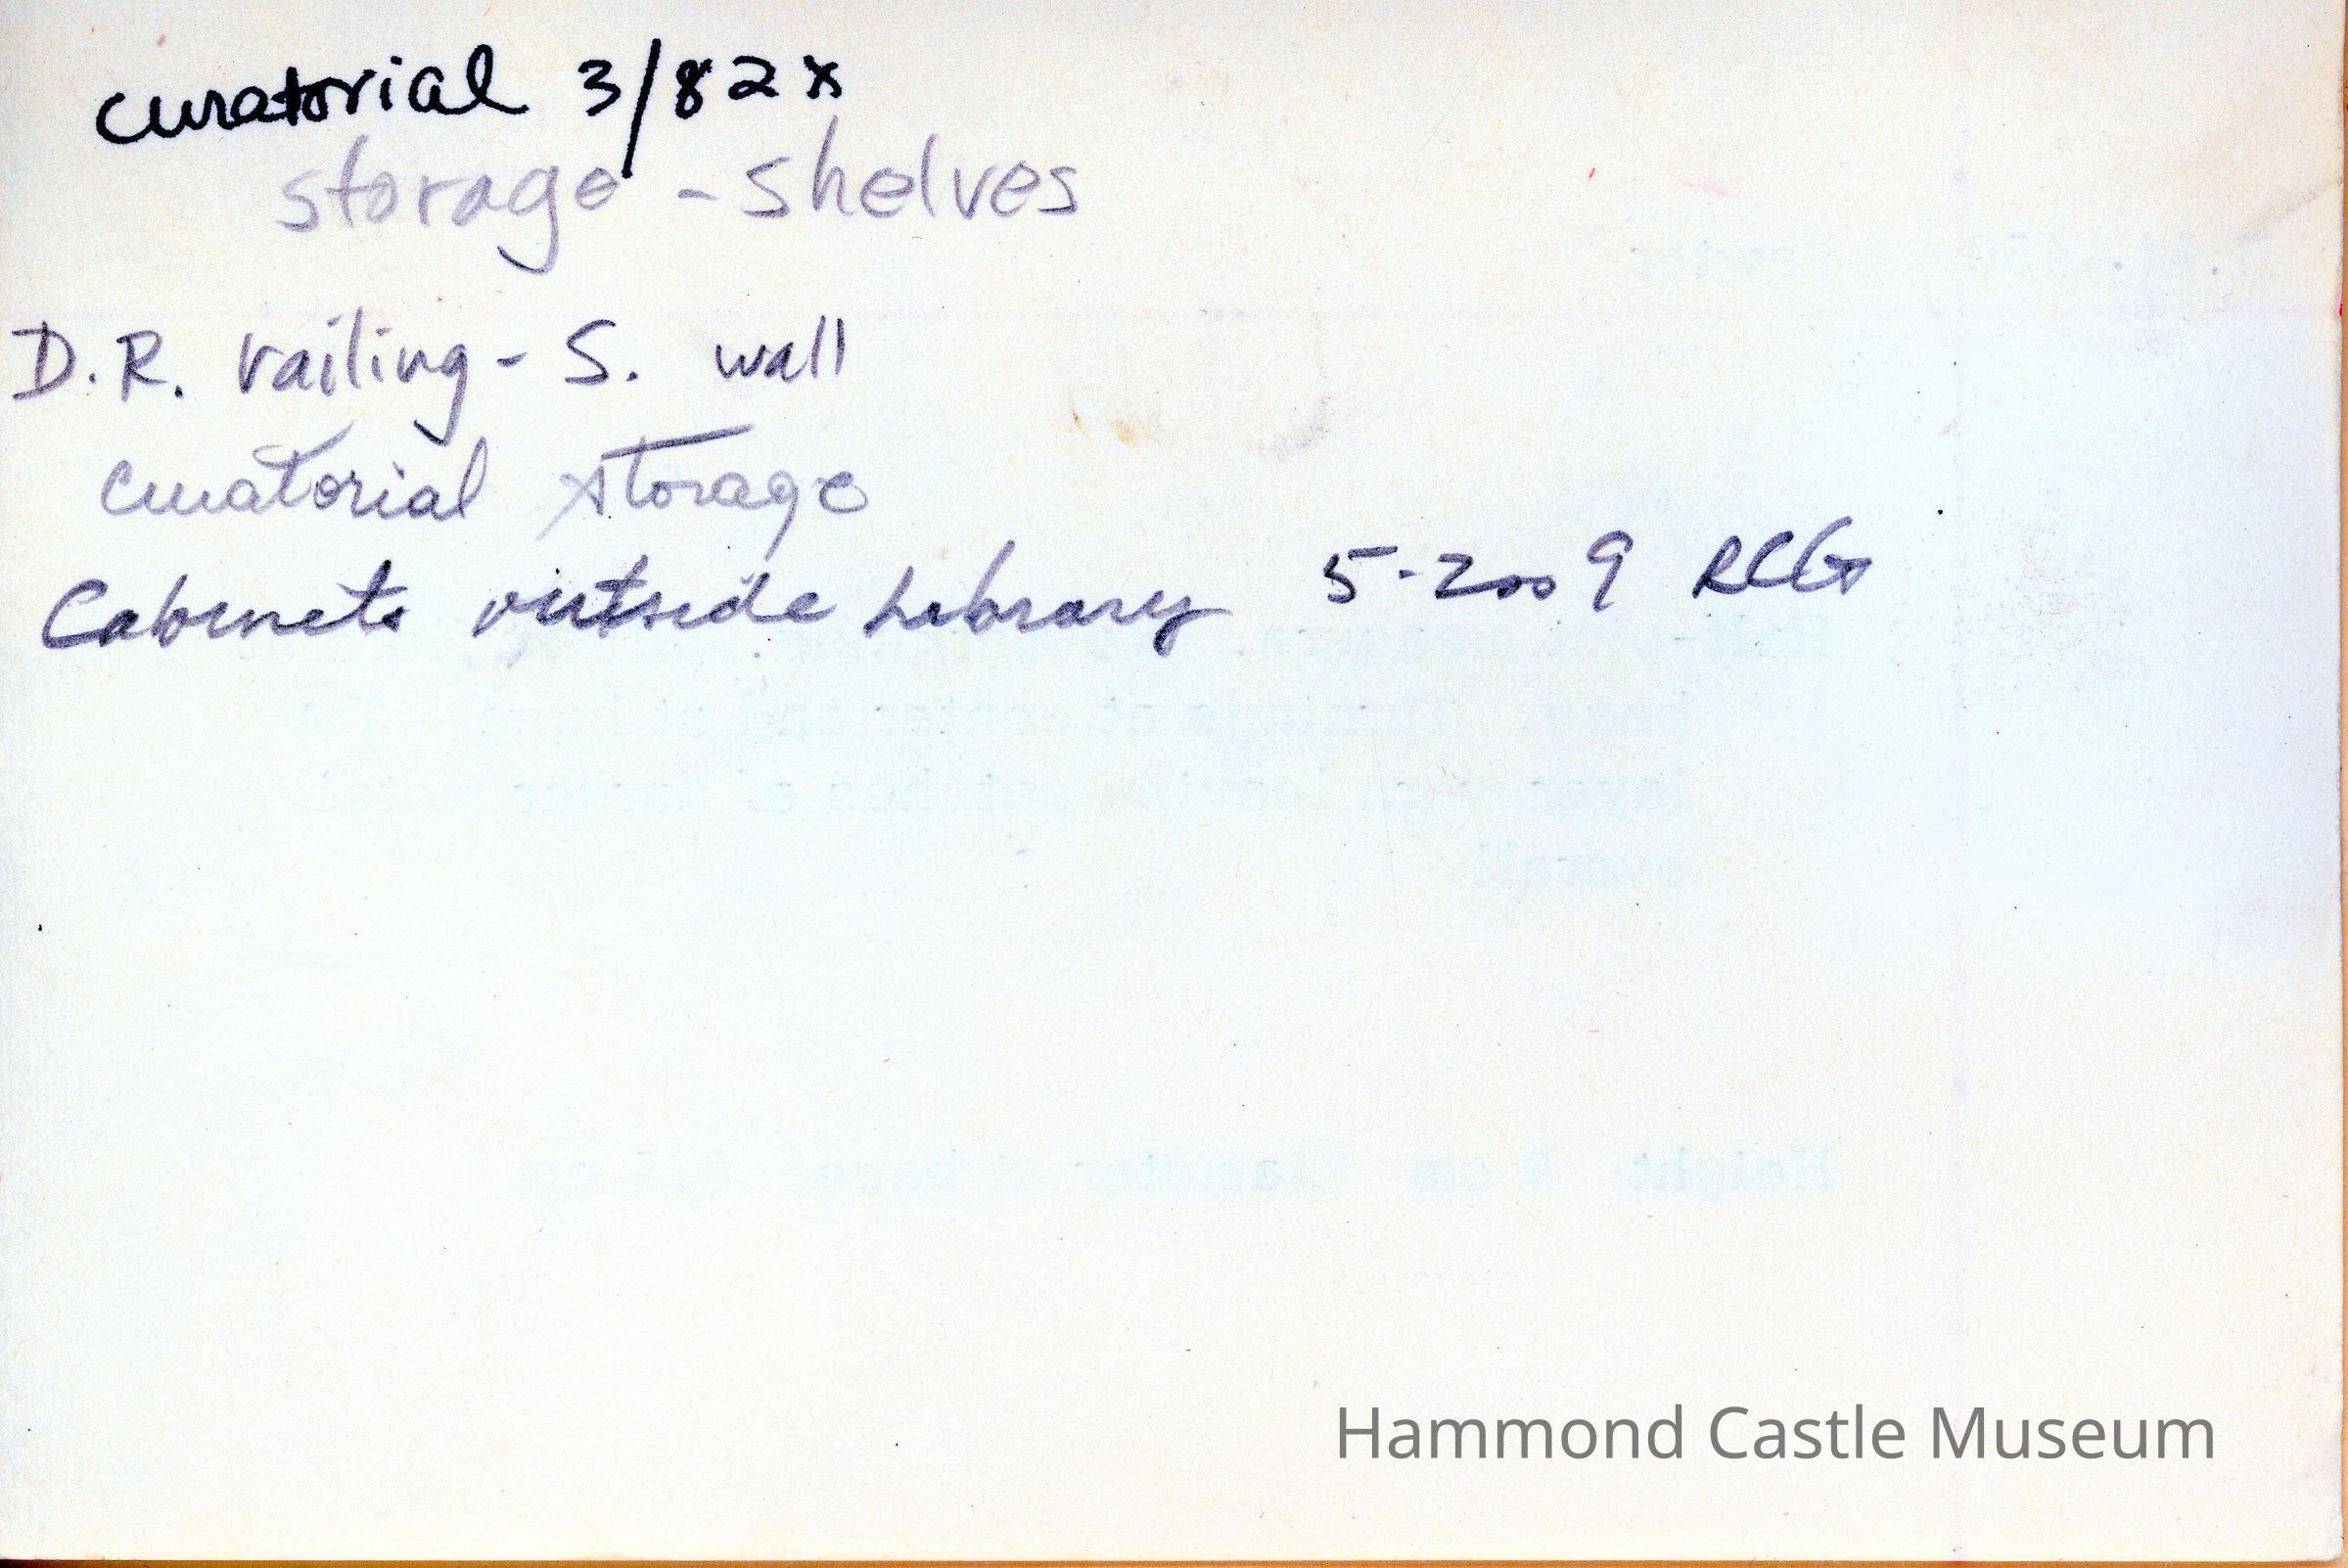 curatorial 3/82 x
storage - shelves
D.R. railing - S. wall
curatorial storage
Cabinets outside Library 5-2009 RCG
Hammond Castle Museum